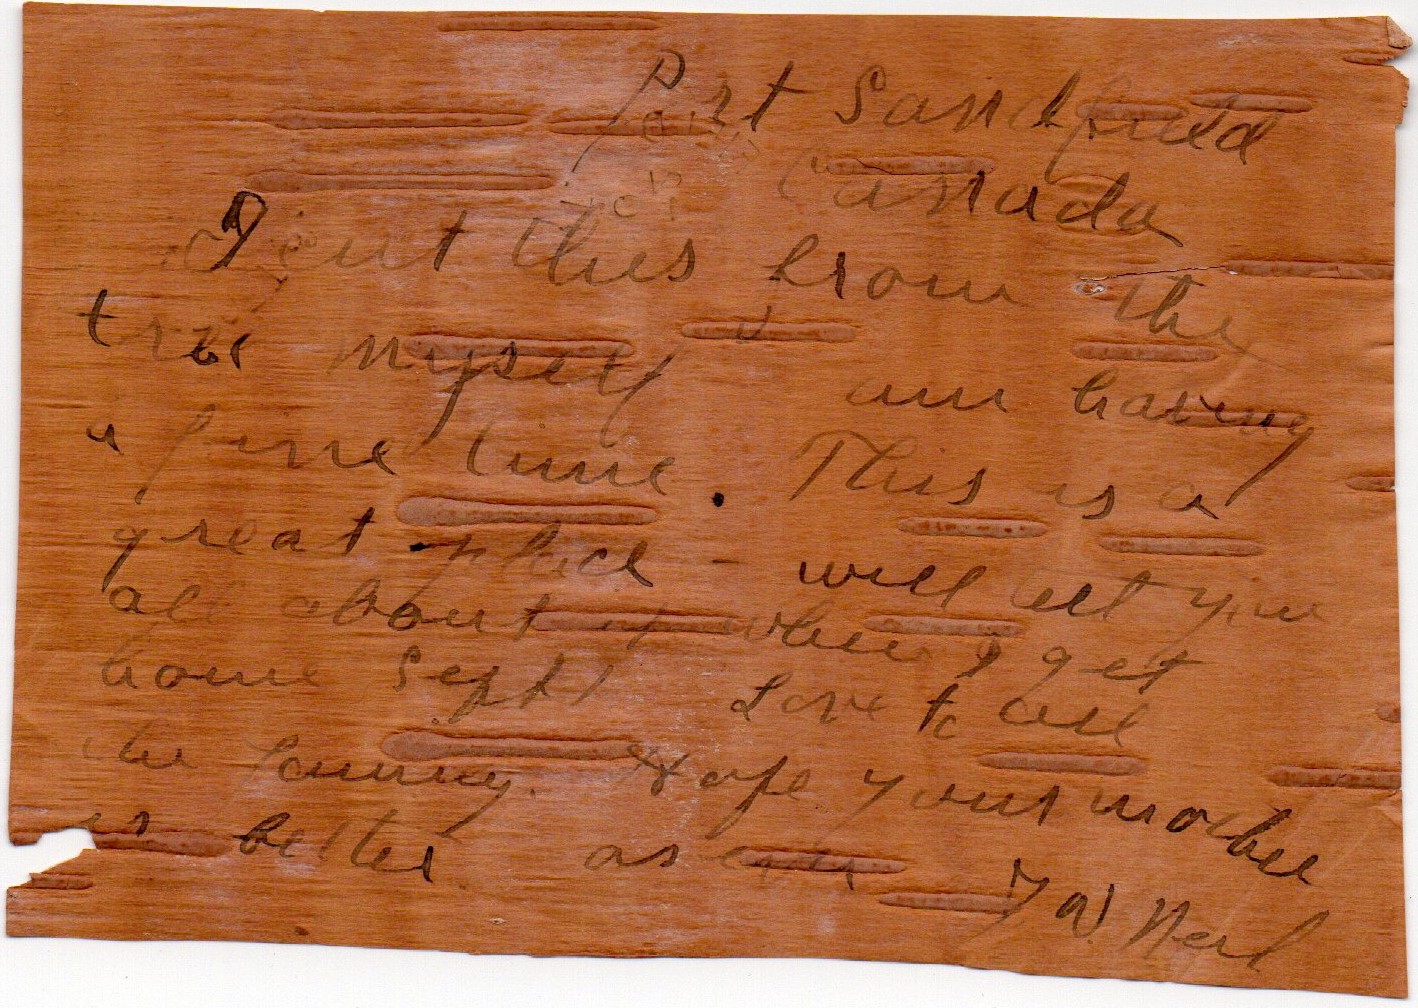 Port Sandfield
Canada
I cut this from the
tree myself am having
a fine time. This is a
great place - will tell you
all about it when I get
home Sept 1 Love to all
the family. Hope your mother
is better as ever